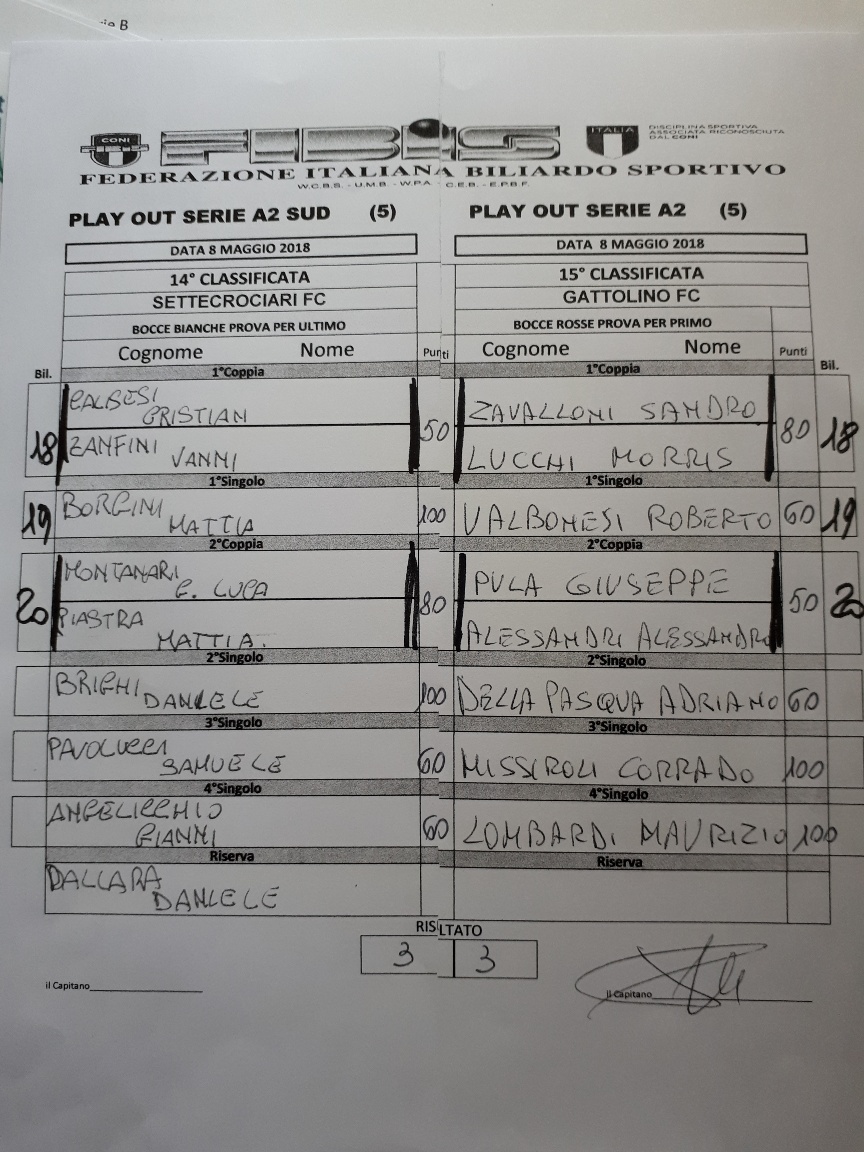 ie B
CONI
FIBiS
ITALIA
DISCIPLINA SPORTIVA
ASSOCIATA RICONOSCIUTA
DAL CONI
FEDERAZIONE ITALIANA BILIARDO SPORTIVO
W.C.B.S. - U.M.B. - W.P.A. - C.E.B. - E.P.B.F.
PLAY OUT SERIE A2 SUD (5)
PLAY OUT SERIE A2 (5)
DATA 8 MAGGIO 2018
DATA 8 MAGGIO 2018
14° CLASSIFICATA
15° CLASSIFICATA
SETTECROCIARI FC
GATTOLINO FC
BOCCE BIANCHE PROVA PER ULTIMO
BOCCE ROSSE PROVA PER PRIMO
Bil. Cognome Nome Punti
Cognome Nome Punti Bil.
1°Coppia
1°Coppia
CALBESI
CRISTIAN
ZAVALLONI SANDRO
18 50
80 18
ZANFINI
VANNI
LUCCHI MORRIS
1°Singolo
1°Singolo
19 BORGINI
MATTIA 100
VALBONESI ROBERTO 60 19
2°Coppia
2°Coppia
MONTANARI
G. LUCA
PULA GIUSEPPE
20 80
50 20
PIASTRA
MATTIA.
ALESSANDRI ALESSANDRO
2°Singolo
2°Singolo
BRIGHI DANIELE 100
DELLA PASQUA ADRIANO 60
3°Singolo
3°Singolo
PAOLUCCI
SAMUELE 60
MISSIROLI CORRADO 100
4°Singolo
4°Singolo
ANGELICCHIO
GIANNI 60
LOMBARDI MAURIZIO 100
Riserva
Riserva
DALLARA
DANIELE
RISLTATO
3 3
il Capitano
il Capitano